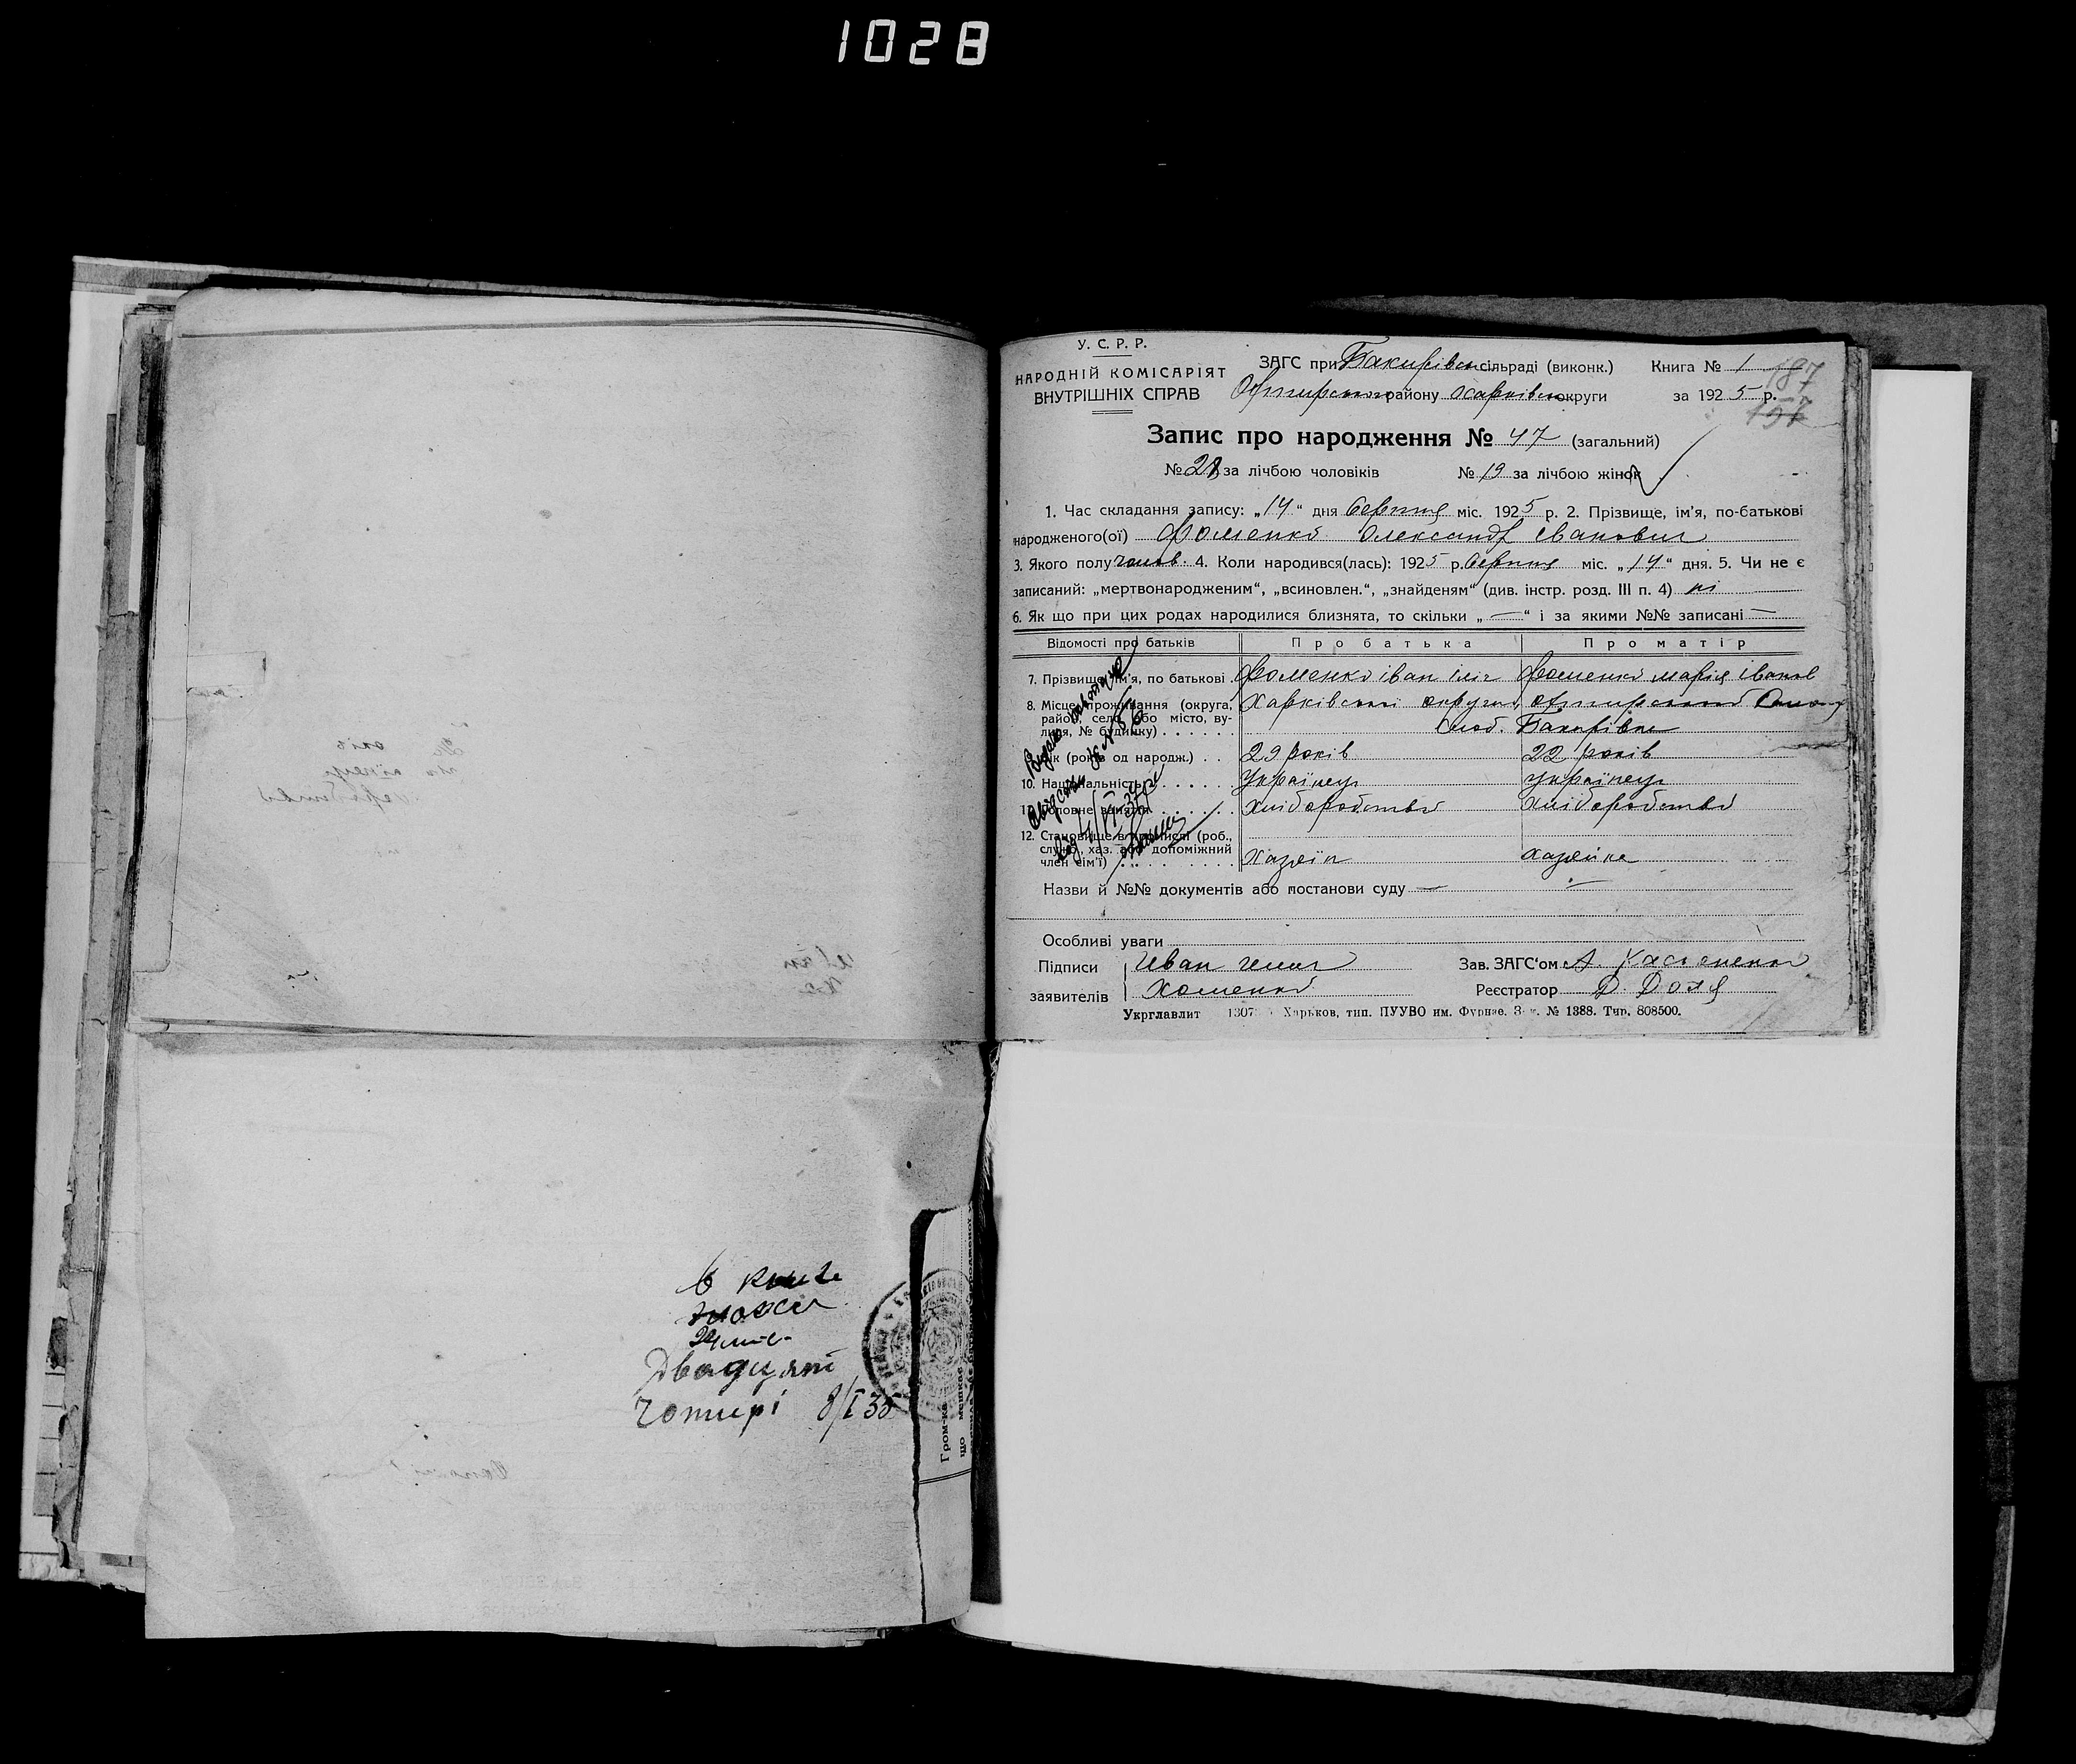 1028
У. С. Р. Р.
НАРОДНІЙ КОМІСАРІЯТ
ВНУТРІШНІХ СПРАВ
ЗАГС при Бакирівськ сільраді (виконк.) Книга № 1
району Харківськ округи за 1925 р.
187
157
Запис про народження № 47 (загальний)
№ 28 за лічбою чоловіків № 19 за лічбою жінок
1. Час складання запису: „14“ дня серпня міс. 1925 р. 2. Прізвище, ім'я, по-батькові
народженого(ої) Фоменко Олександр Іванович
3. Якого полу чолов. 4. Коли народився(лась): 1925 р. серпня міс. „14“ дня. 5. Чи не є
записаний: „мертвонародженим“, „всиновлен.“, „знайденям“ (див. інстр. розд. III п. 4) ні
6. Як що при цих родах народилися близнята, то скільки „—“ і за якими №№ записані —
Відомості про батьків Про батька Про матір
7. Прізвище, ім'я, по батькові Фоменко Іван Ілліч Фоменко Марія Іванов
8. Місце проживання (округа, Харківської округи,
район, село або місто, ву-
лиця, № будинку) слоб. Бакирівка
Вік (років од народж.) 29 років 22 років
10. Національність українець українець
Головне заняття хліборобство хліборобство
12. Становище в промислі (роб.,
служ., хаз. або допоміжний
член сім'ї) хазяїн хазяйка
Назви й №№ документів або постанови суду —
Особливі уваги
Підписи Иван Зав. ЗАГС'ом А. Касьяненко
заявителів Хоменко Реєстратор Д. Доля
Укрглавлит Харьков, тип. ПУУВО им. Фрунзе. Зак. № 1388. Тир. 808500.
В книге
Двадцят
Чотирі 8/I 35
Гром-ка
що мешкає